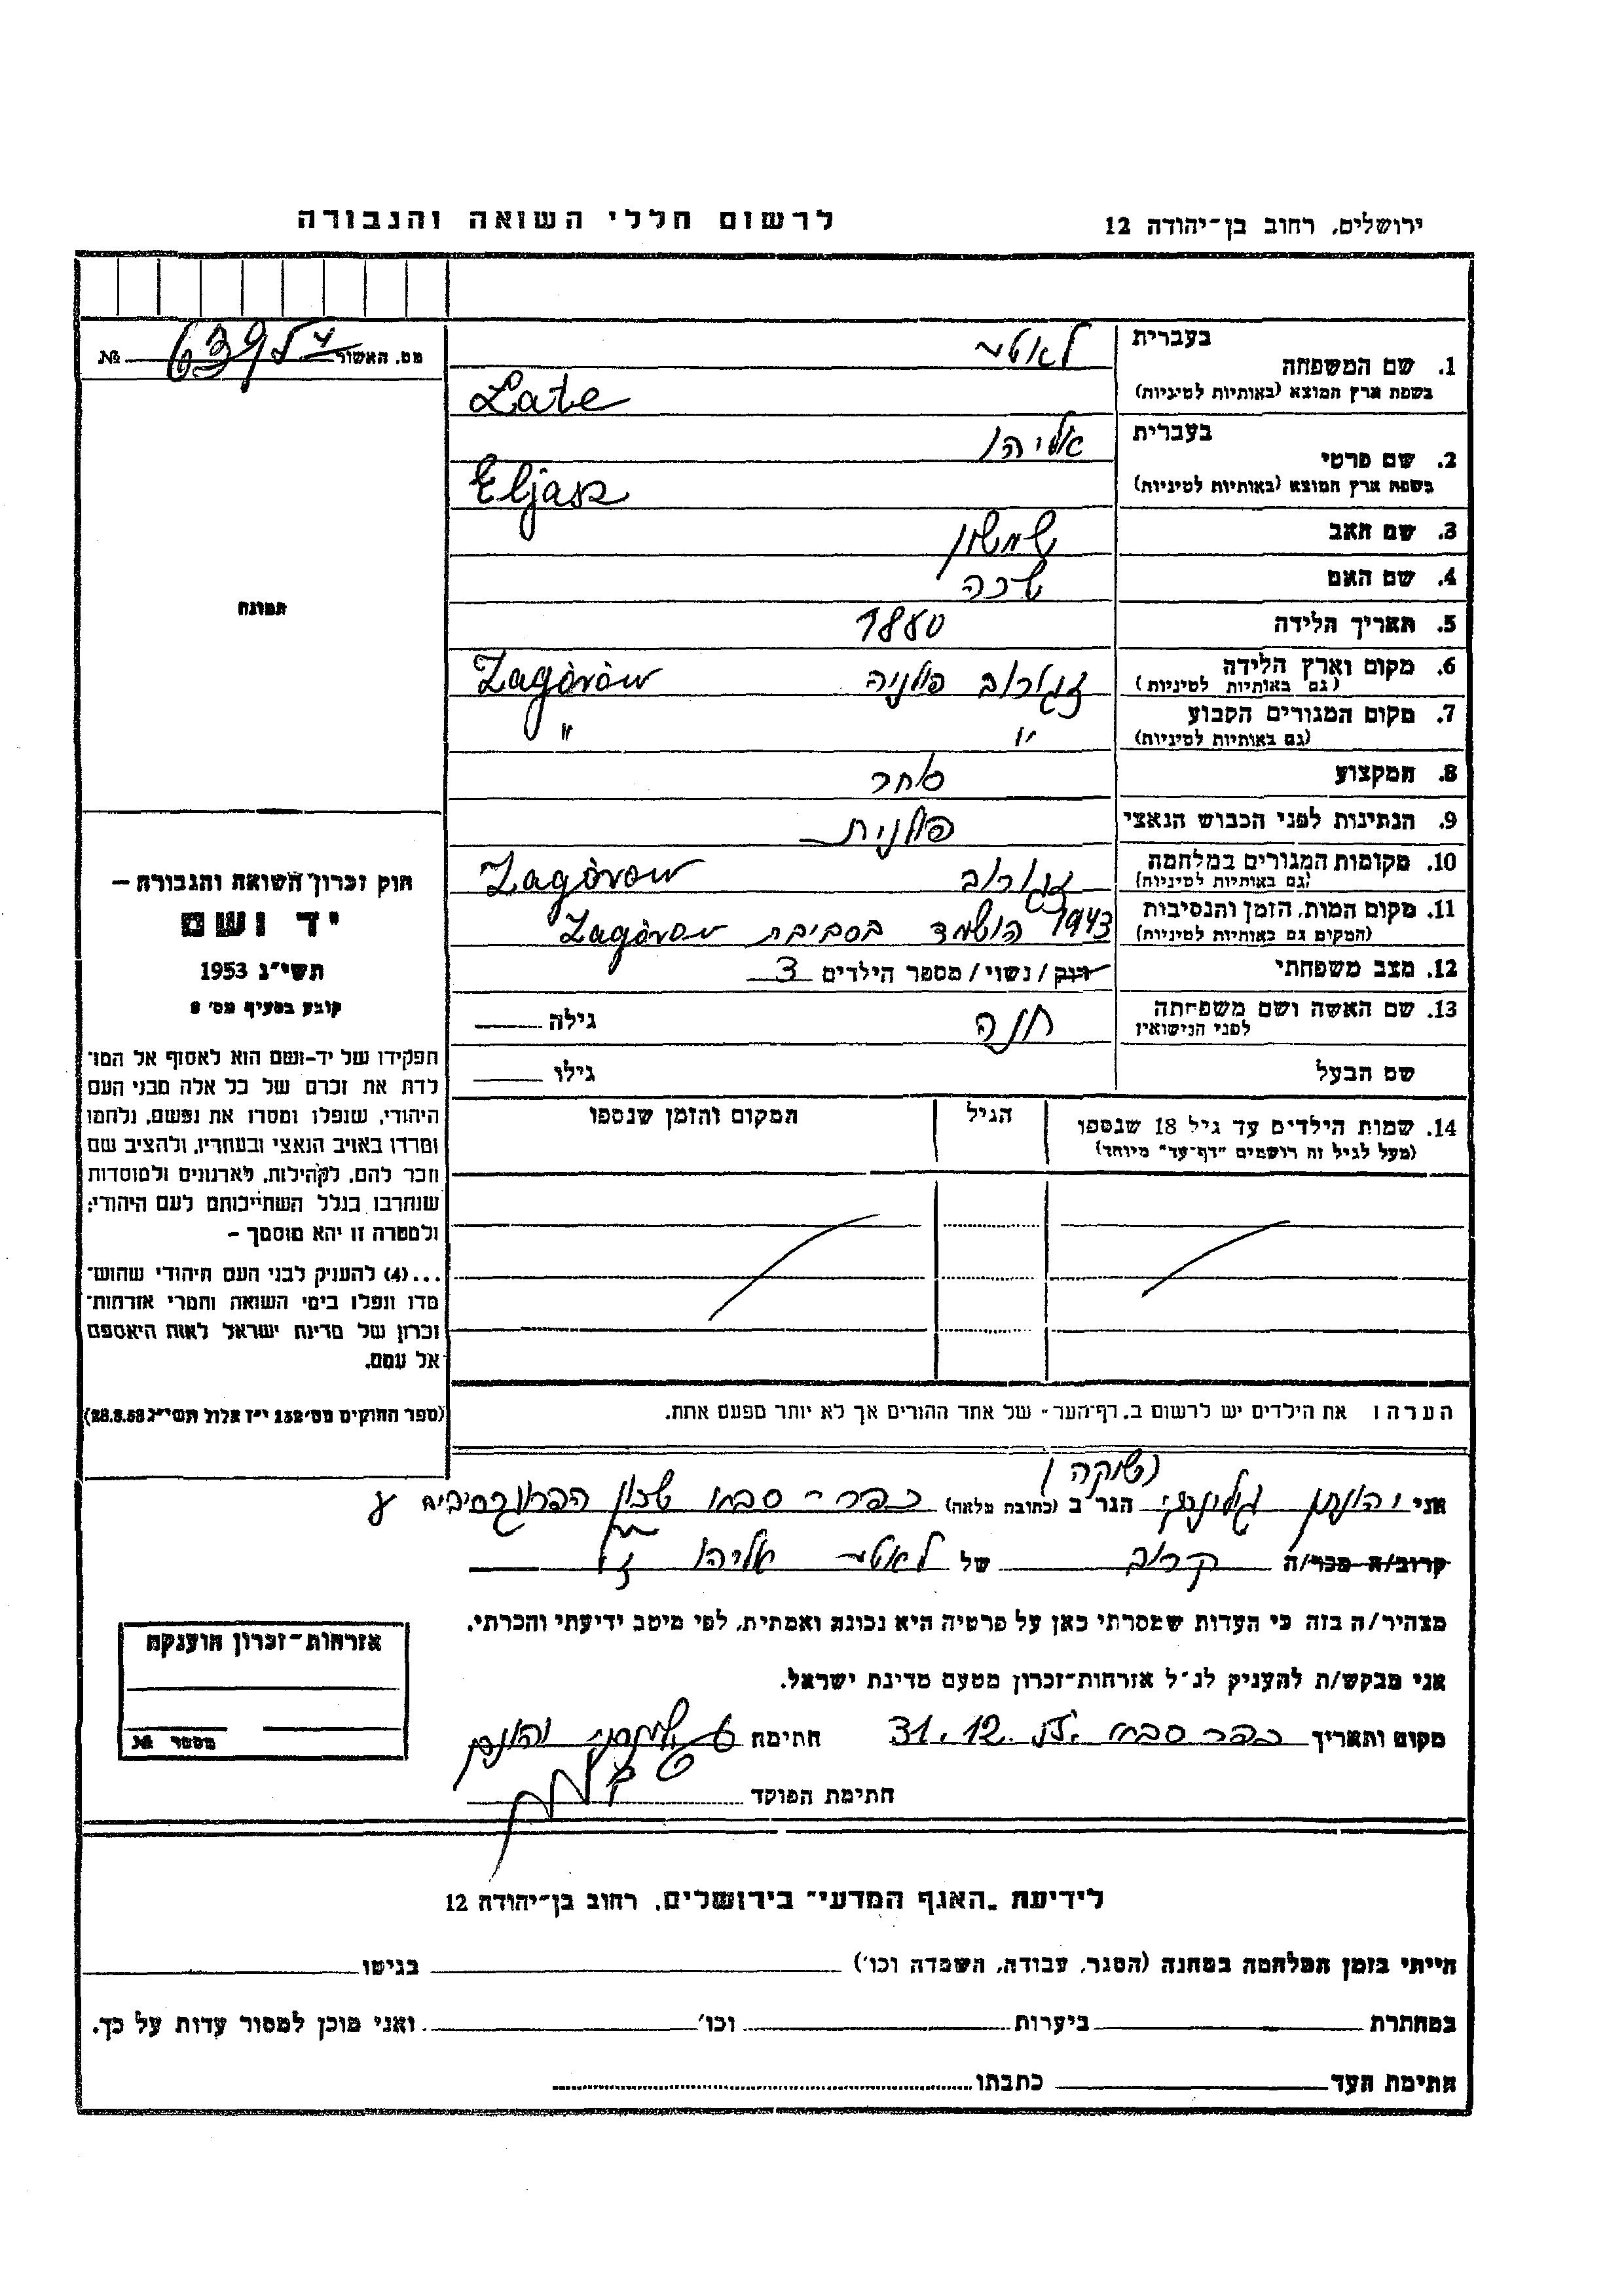 לרשום חללי השואה והגבורה
ירושלים, רחוב בן־יהודה 12
מס. האשור №
בעברית
לאטע
1. שם המשפחה
בשפת ארץ המוצא (באותיות לטיניות)
Late
בעברית
אליהו
2. שם פרטי
בשפת ארץ המוצא (באותיות לטיניות)
Eljasz
3. שם האב שמשון
4. שם האם
5. תאריך הלידה 1880
6. מקום וארץ הלידה זגורוב פולניה Zagòròw
(גם באותיות לטיניות)
7. מקום המגורים הקבוע " "
(גם באותיות לטיניות)
8. המקצוע סוחר
9. הנתינות לפני הכבוש הנאצי פולנית
10. מקומות המגורים במלחמה זגורוב Zagòrow
(גם באותיות לטיניות)
11. מקום המות, הזמן והנסיבות 1943 הושמד בסביבת Zagòrow
(המקום גם באותיות לטיניות)
12. מצב משפחתי רוק / נשוי / מספר הילדים 3
13. שם האשה ושם משפחתה חנה גילה
לפני הנישואין
שם הבעל גילו
14. שמות הילדים עד גיל 18 שנספו הגיל המקום והזמן שנספו
(מעל לגיל זה רושמים "דף־עד" מיוחד)
הערה: את הילדים יש לרשום ב„דף־העד" של אחד ההורים אך לא יותר מפעם אחת.
תמונה
חוק זכרון השואה והגבורה –
יד ושם
תשי"ג 1953
קובע בסעיף מס' 2
תפקידו של יד-ושם הוא לאסוף אל המו־
לדת את זכרם של כל אלה מבני העם
היהודי, שנפלו ומסרו את נפשם, נלחמו
ומרדו באויב הנאצי ובעוזריו, ולהציב שם
וזכר להם, לקהילות, לארגונים ולמוסדות
שנחרבו בגלל השתייכותם לעם היהודי;
ולמטרה זו יהא מוסמך –
...(4) להעניק לבני העם היהודי שהוש־
מדו ונפלו בימי השואה והמרי אזרחות־
זכרון של מדינת ישראל לאות היאספם
אל עמם.
(ספר החוקים מס' 132 י"ז אלול תשי"ג 28.8.53)
אני יהונתן הגר ב (כתובת מלאה) כפר-סבא שכון הפרוגרסיבים
קרוב/ה מכר/ה קרוב של לאטע אליהו ז"ל
מצהיר/ה בזה כי העדות שמסרתי כאן על פרטיה היא נכונה ואמתית, לפי מיטב ידיעתי והכרתי.
אני מבקש/ת להעניק לנ"ל אזרחות־זכרון מטעם מדינת ישראל.
מקום ותאריך כפר סבא 31.12 חתימה
חתימת הפוקד
אזרחות־זכרון הוענקה
מספר №
לידיעת „האגף המדעי" בירושלים, רחוב בן־יהודה 12
הייתי בזמן המלחמה במחנה (הסגר, עבודה, השמדה וכו') בגיטו
במחתרת ביערות וכו' ואני מוכן למסור עדות על כך.
חתימת העד כתבתו